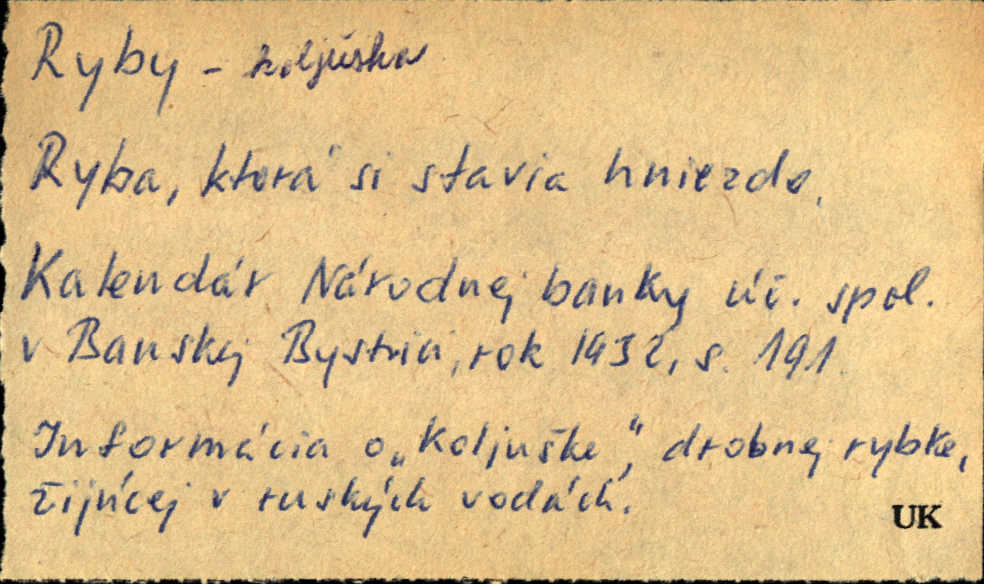 Ryby - koljúška
Ryba, ktorá si stavia hniezdo.
Kalendár Národnej banky úč. spol.
v Banskej Bystrici, rok 1932, s. 191.
Informácia o „Koljuške", drobnej rybke,
žijúcej v ruských vodách.
UK